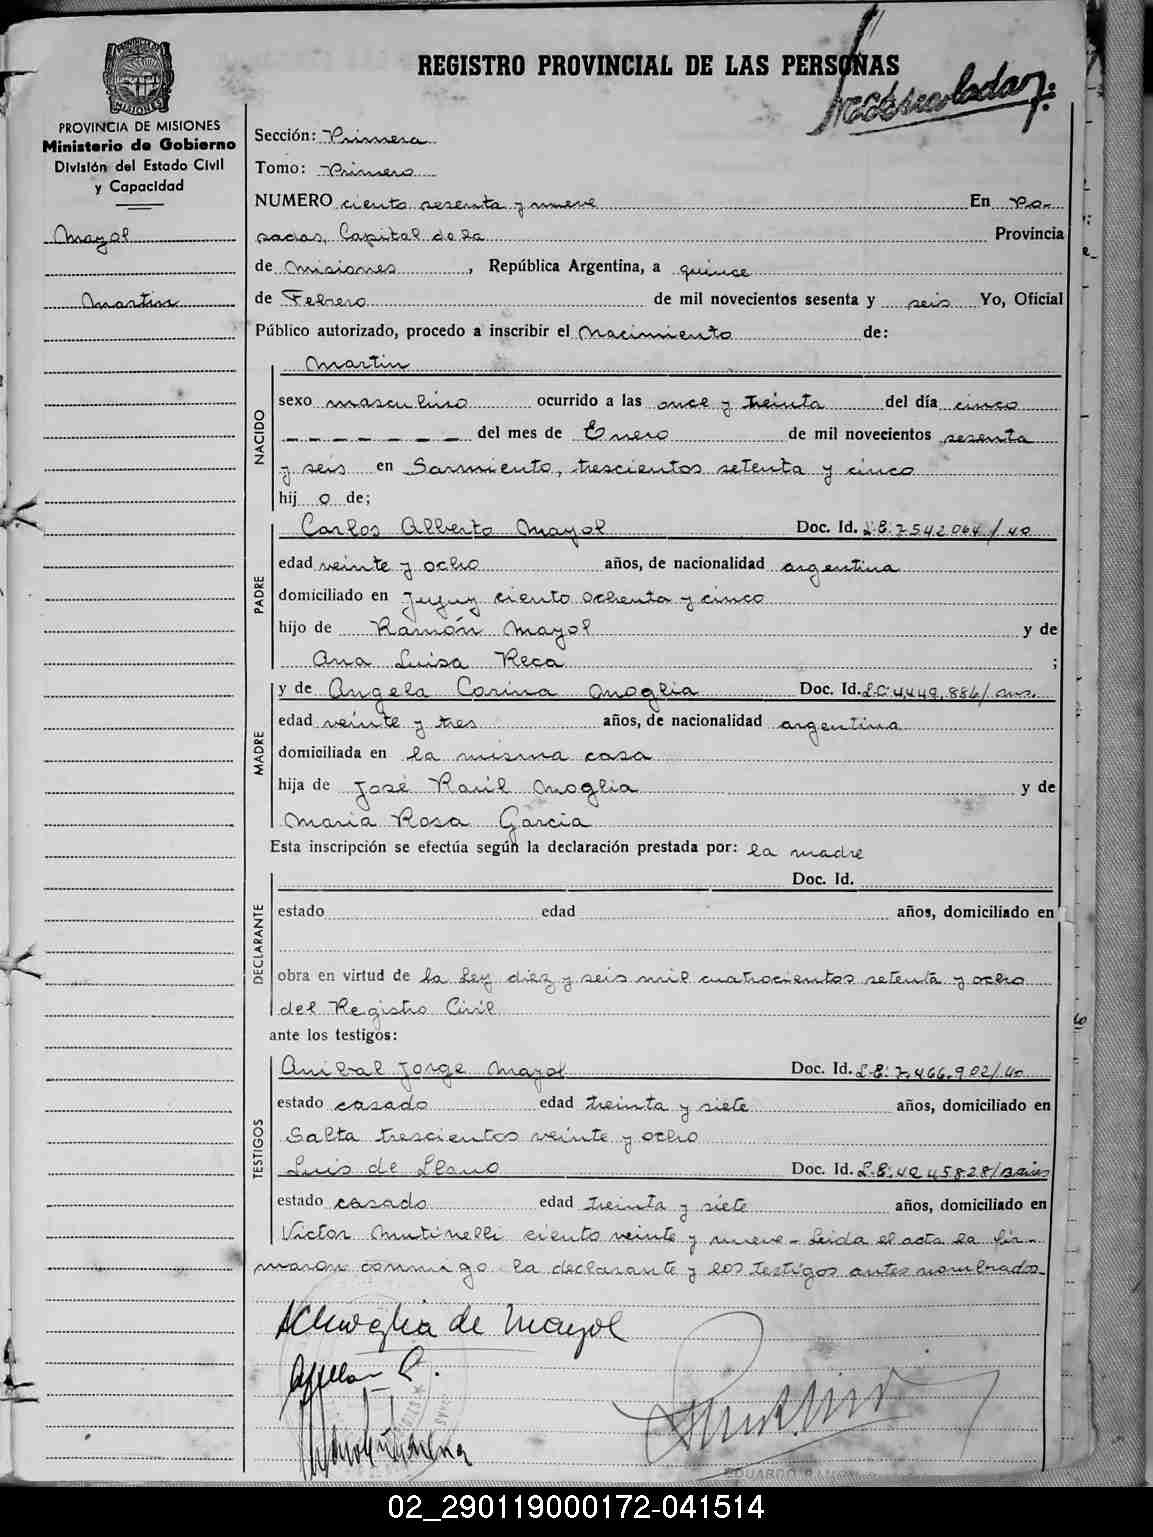 REGISTRO PROVINCIAL DE LAS PERSONAS
MISIONES
PROVINCIA DE MISIONES
Ministerio de Gobierno
División del Estado Civil
y Capacidad
Mayol
Martin
Sección: Primera
Tomo: Primero
NUMERO ciento sesenta y nueve En Po-
sadas, Capital de la Provincia
de Misiones, República Argentina, a quince
de Febrero de mil novecientos sesenta y seis Yo, Oficial
Público autorizado, procedo a inscribir el Nacimiento de:
Martin
NACIDO
sexo masculino ocurrido a las once y treinta del día cinco
del mes de Enero de mil novecientos sesenta
y seis en Sarmiento, trescientos setenta y cinco
hij o de;
PADRE
Carlos Alberto Mayol Doc. Id. L.E. 7542064/40
edad veinte y ocho años, de nacionalidad argentina
domiciliado en Jujuy ciento ochenta y cinco
hijo de Ramón Mayol y de
Ana Luisa Reca ;
MADRE
y de Angela Corina Moglia Doc. Id. L.C. 4.449.886/
edad veinte y tres años, de nacionalidad argentina
domiciliada en la misma casa
hija de José Raúl Moglia y de
Maria Rosa Garcia
Esta inscripción se efectúa según la declaración prestada por: la madre
DECLARANTE
Doc. Id.
estado edad años, domiciliado en
obra en virtud de la Ley diez y seis mil cuatrocientos setenta y ocho
del Registro Civil
ante los testigos:
TESTIGOS
Anibal Jorge Mayol Doc. Id. L.E. 7.466.902/40
estado casado edad treinta y siete años, domiciliado en
Salta trescientos veinte y ocho
Luis de Llano Doc. Id. L.E.
estado casado edad treinta y siete años, domiciliado en
Victor Mutinelli ciento veinte y nueve - Leida el acta la fir-
maron conmigo la declarante y los testigos antes nombrados
ACMoglia de Mayol
EDUARDO RAMON
02_290119000172-041514